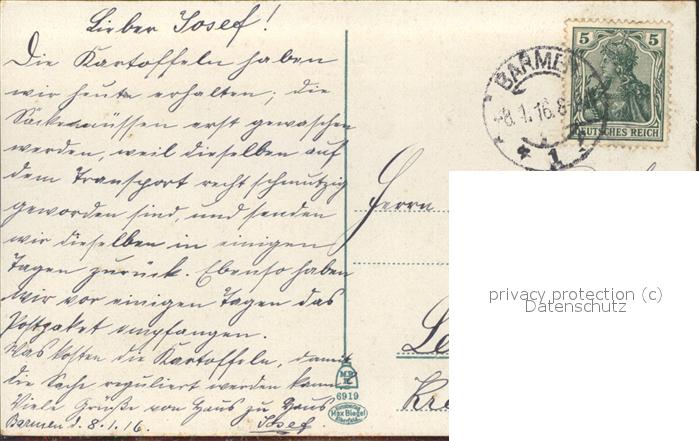 Lieber Josef!
Die Kartoffeln haben
wir heute erhalten; die
Säcke müssen erst gewaschen
werden, weil dieselben auf
dem Transport recht schmutzig
geworden sind, und senden
wir dieselben in einigen
Tagen zurück. Ebenso haben
wir vor einigen Tagen das
Postpaket empfangen.
Was kosten die Kartoffeln, damit
die Sache reguliert werden kann
Viele Grüße von Haus zu Haus
Josef
Barmen d. 8.1.16.
BARMEN
8.1.16.8
* 1
5 5
DEUTSCHES REICH
Herrn
privacy protection (c)
Datenschutz
6919
Max Biegel
Elberfeld